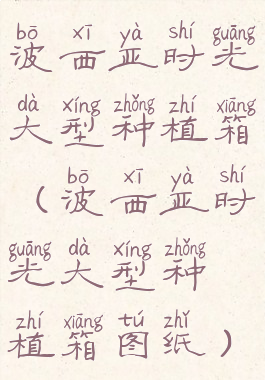 bō xī yà shí guāng
波西亚时光
dà xíng zhǒng zhí xiāng
大型种植箱
bō xī yà shí
(波西亚时
guāng dà xíng zhǒng
光大型种
zhí xiāng tú zhǐ
植箱图纸)